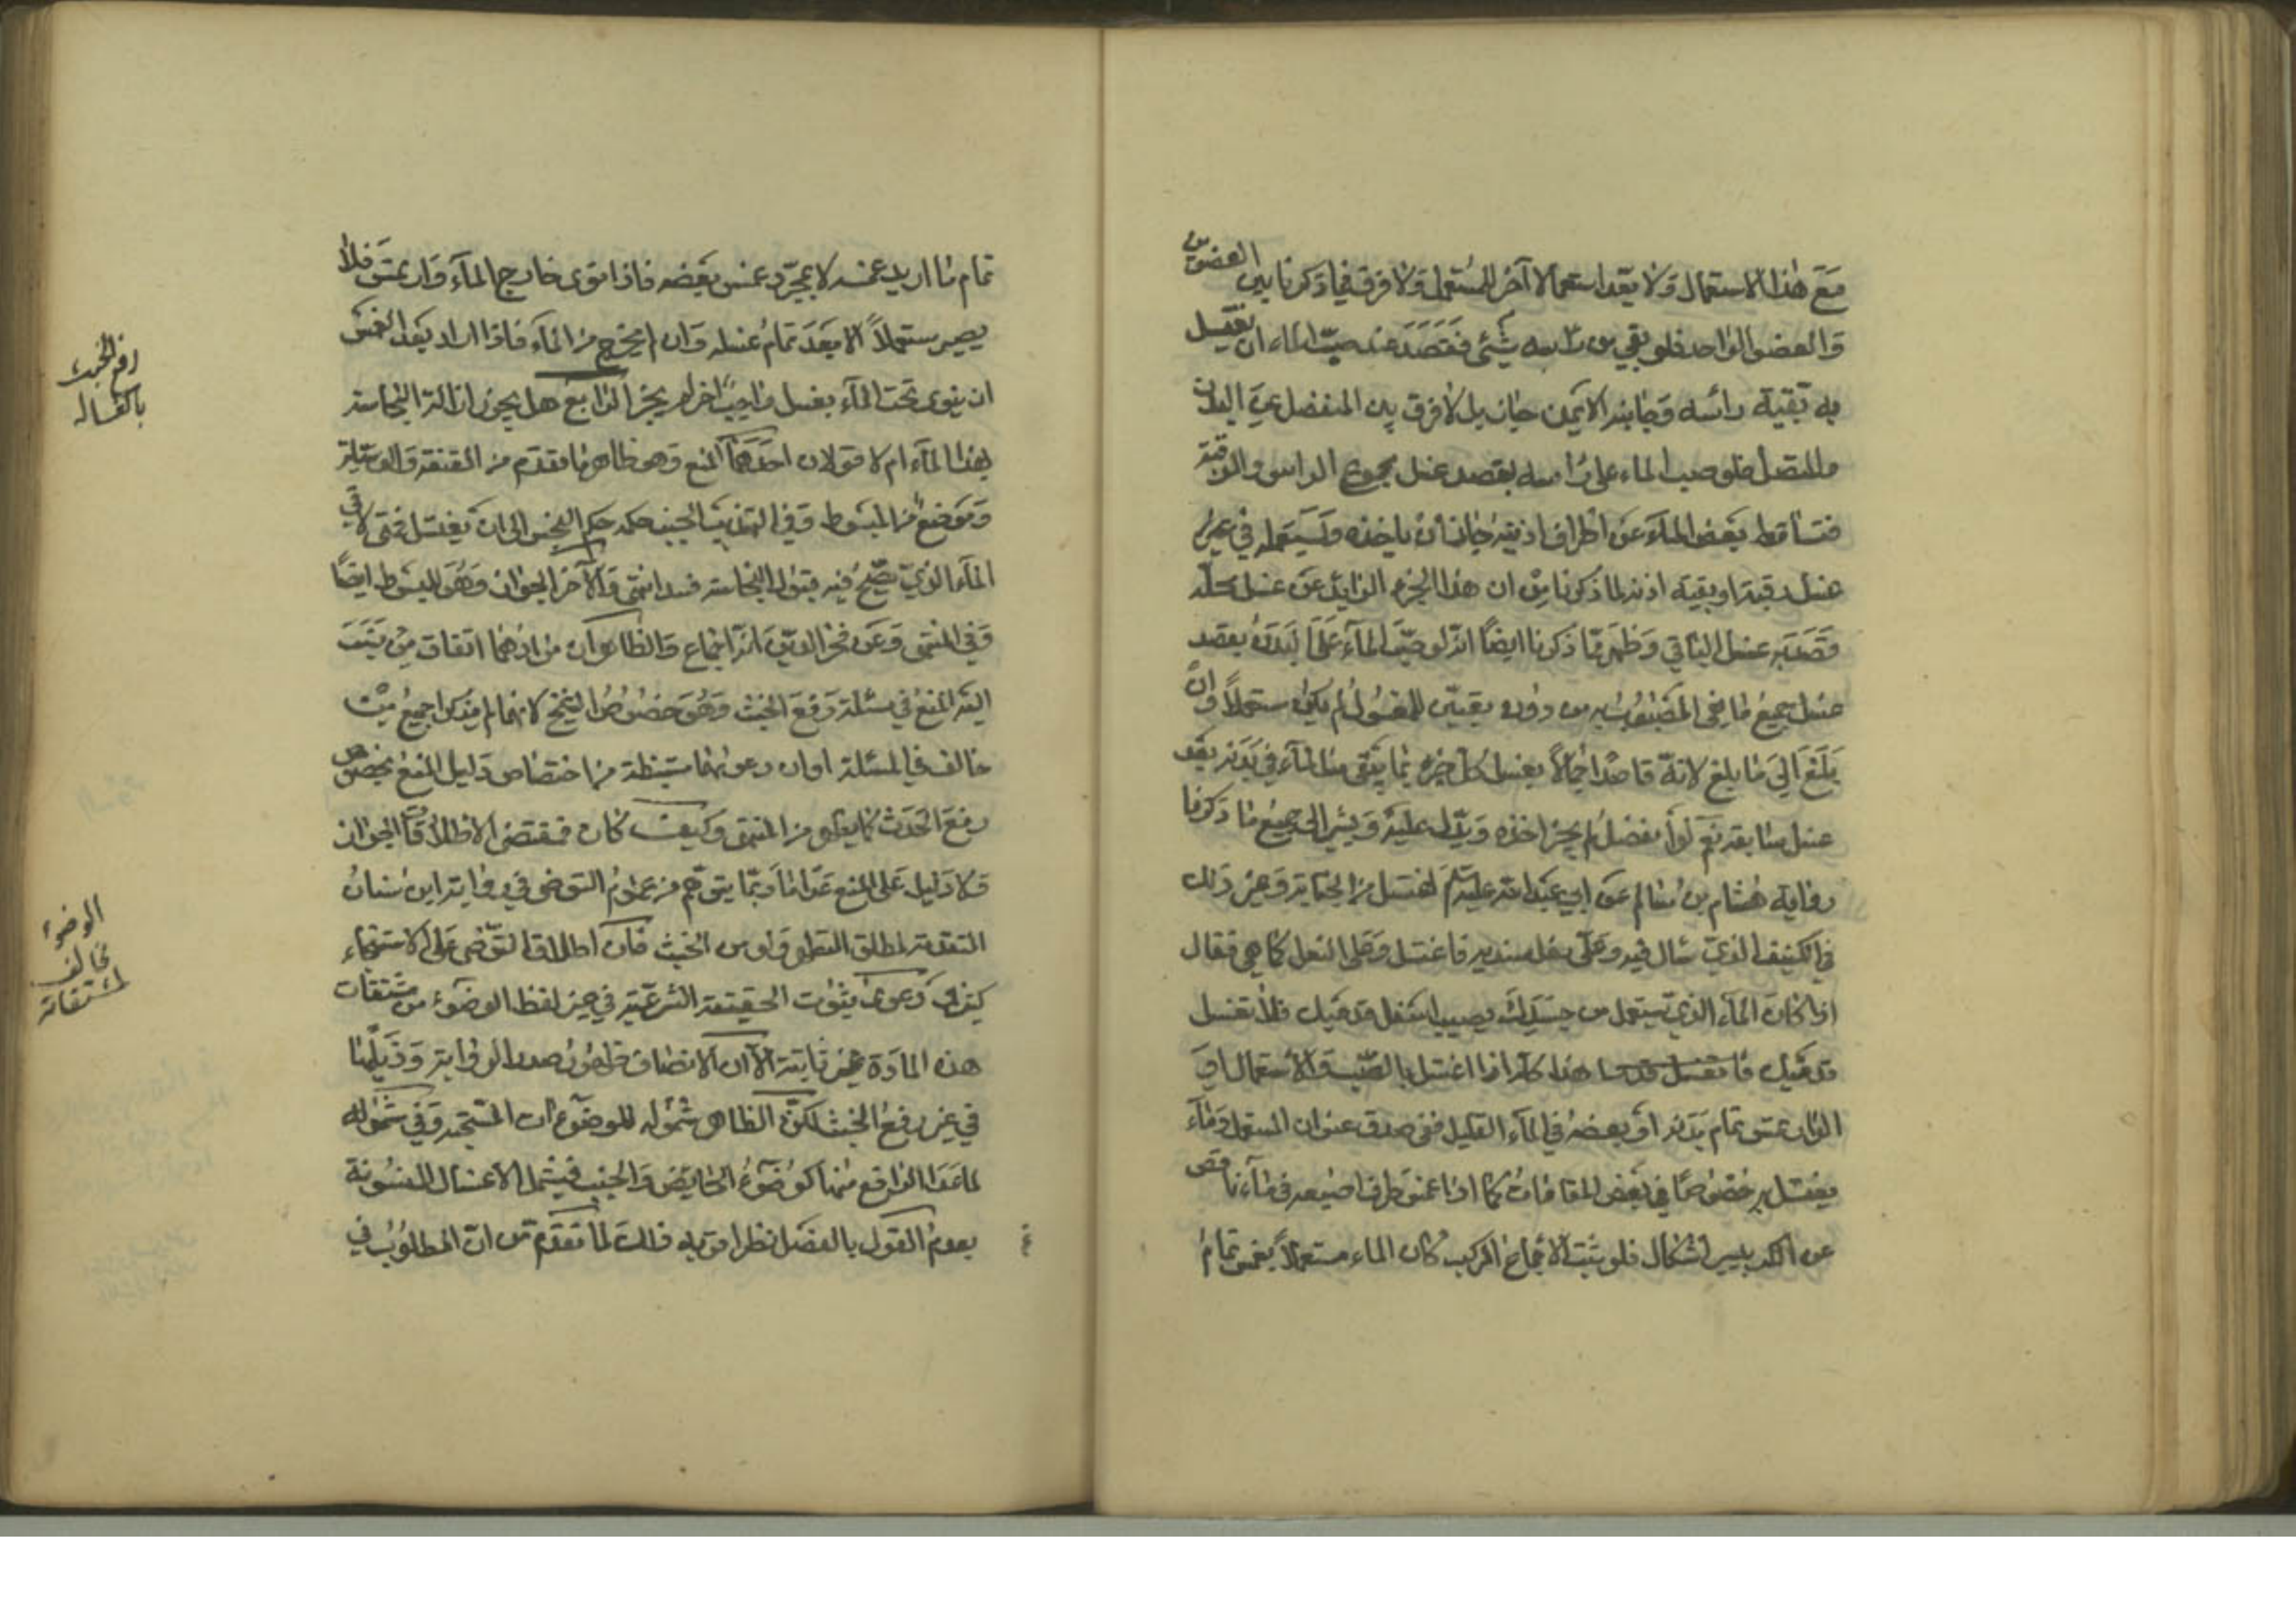 مع هذا الاستعمال ولا يعد استعمالا آخر للمستعمل ولا فرق فيما ذكرنا بين العضوين
والعضو الواحد فلو بقي من راسه شيئ فقصد عند صبّ الماء ان يغتسل
به بقية رأسه وجانبه الايمن جاز بل لا فرق بين المنفصل عن البدن
والمتصل فلو صب الماء على راسه بقصد غسل مجموع الراس والرقبة
فتساقط بعض الماء عن اطراف اذنيه جاز ان ياخذه ويستعمله في غير
غسل رقبته او بقية اذنه لما ذكرنا من ان هذا الجزء الزايد عن غسل محله
قصد به غسل الباقي وظهر مما ذكرنا ايضاً انه لو صبّ الماء على بدنه بقصد
غسل جميع ما في المصبوب من دون تعيين المغسول لم يكن مستعملاً وان
بلغ الى ما بلغ لانه قاصد اجمالاً بغسل كل جزء ما يبقى من الماء في بدنه بعد
غسل سابقه نعم لو انفصل لم يجز اخذه ويدل عليه ويشير الى جميع ما ذكرنا
رواية هشام بن سالم عن ابي عبد الله عليه السلم اغتسل من الجنابة وغير ذلك
في الكنيف الذي يبال فيه وعلى نعل سندية فاغتسل وعلى النعل كما هي فقال
اذا كان الماء الذي يسيل من جسدك يصيب اسفل قدميك فلا تغسل
قدميك هذا كله اذا اغتسل بالصبّ والاستعمال اما
لو ارتمس تمام بدنه او بعضه في الماء القليل ففي صدق عنوان المستعمل وماء
يغتسل به خصوصاً في بعض المقامات كما اذا غمس طرف اصبعه في ماء ناقص
عن الكر بيسير اشكال فلو ثبت الاجماع المركب كان الماء مستعملاً بغمس تمام
تمام ما اريد غمسه لا بمجرّد غمس بعضه فاذا نوى خارج الماء وارتمس فلا
يصير مستعملاً الا بعد تمام غسله وان لم يخرج من الماء فاذا اراد بعد الغمس
ان ينوى تحت الماء بغسل واجب اخر لم يجز الرابع هل يجوز ازالة النجاسة
بهذا الماء ام لا قولان احدهما المنع وهو ظاهر ما تقدم من المقنعة والوسيلة
وموضع من المبسوط وفي التهذيب الجنب حكمه حكم النجس الى ان يغتسل فمتى لاقى
الماء الذي يصح فيه قبول النجاسة فسد انتهى والآخر الجواز وهو للمبسوط ايضاً
وفي المنتهى وعن فخر الدين انه اجماع والظاهر ان مرادهما اتفاق من نسب
اليه المنع في مسئلة رفع الخبث وهو خصوص الشيخ لانهما لم يذكرا جميع من
خالف في المسئلة او ان دعويهما مستنبطة من اختصاص دليل المنع بخصوص
رفع الحدث كما يظهر من المنتهى وكيف كان فمقتضى الاطلاقات الجواز
ولا دليل على المنع عدا ما ربما يتوهم من عموم التوضي في رواية ابن سنان
المتقدمة لمطلق التطهر ولو من الخبث فان اطلاق التوضي على الاستنجاء
كثير ودعوى ثبوت الحقيقة الشرعية في غير لفظ الوضوء من مشتقات
هذه المادة غير ثابتة الا ان الانصاف ظهور صدر الرواية وذيلها
في غير رفع الخبث لكن الظاهر شموله للوضوءات المستحبة وفي شموله
لما عدا الرافع منها كوضوء الحايض والجنب فيشمل الاغسال المسنونة
بعدم القول بالفصل نظر اقربه ذلك لما تقدم من ان المطلوب في
رفع الخبث
بالغسالة
الوضوء
مخالف
لمشتقاته